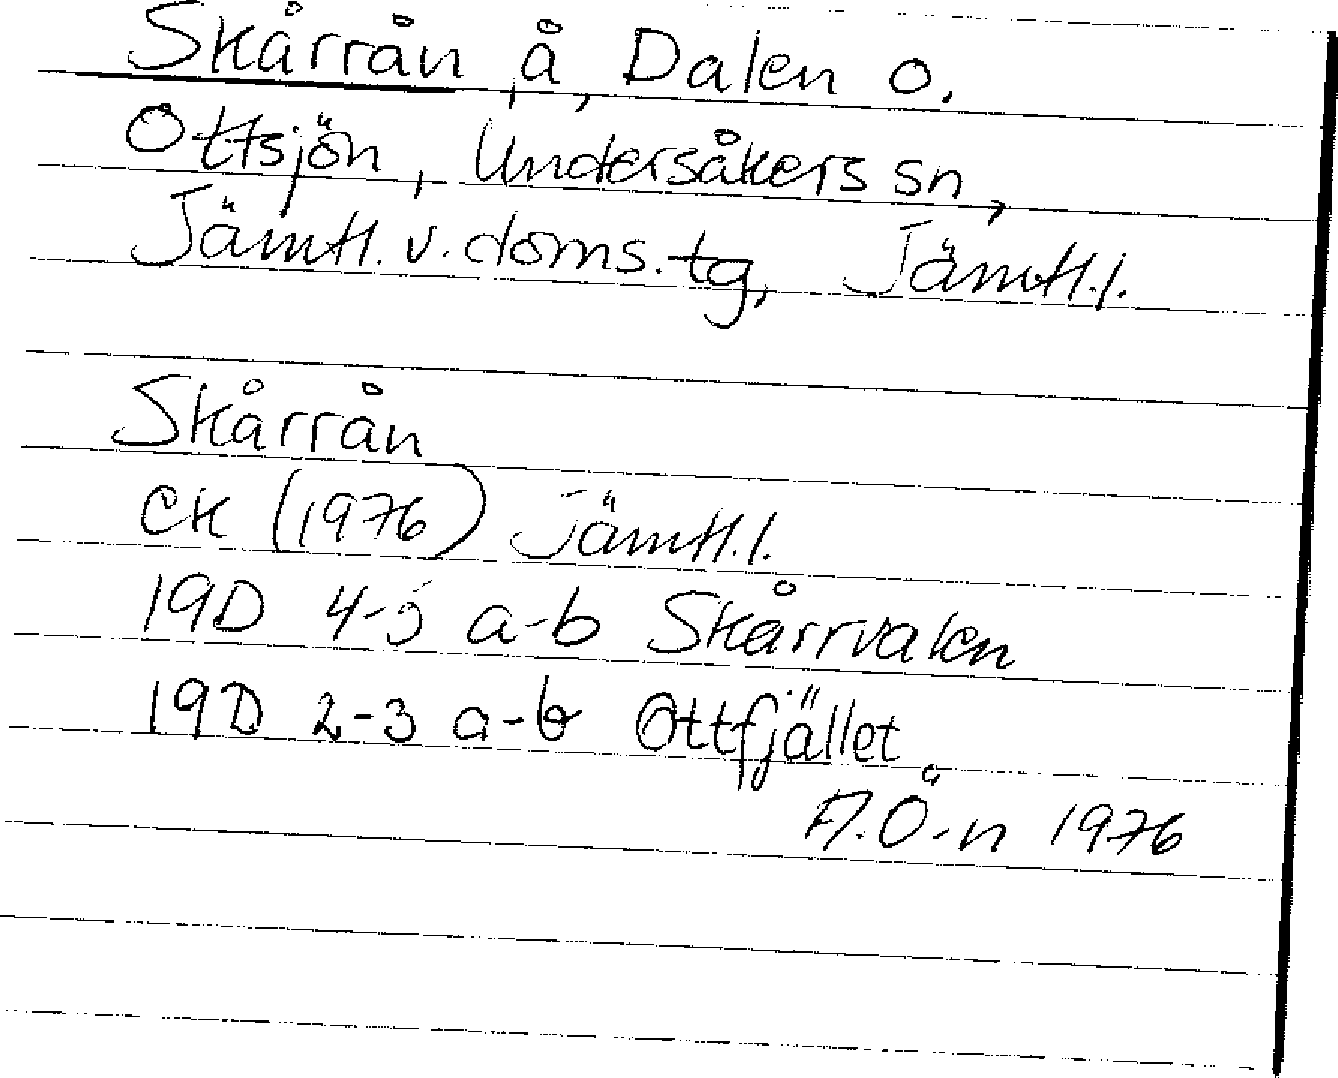 Skårrån, å, Dalen o.
Ottsjön, Undersåkers sn,
Jämtl. v. doms.tg, Jämtl.l.
Skårrån
EK (1976) Jämtl.l.
19D 4-5 a-b Skårrvalen
19D 2-3 a-b Ottfjället
A.Ö-n 1976